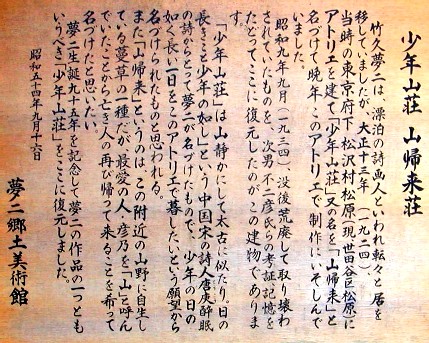 少年山荘 山帰来荘
竹久夢二は、漂泊の詩画人といわれ転々と居を
移していましたが、大正十三年(一九二四)、
当時の東京府下松沢村松原(現世田谷区松原)に
アトリエを建て「少年山荘」又の名を「山帰来」と
名づけて、晩年、このアトリエで制作にいそしんで
いました。
昭和九年九月(一九三四)没後荒廃して取り壊わ
されていたものを、次男不二彦氏らの考証、記憶を
たどってここに復元したのがこの建物でありま
す。
「少年山荘」は山静かにして太古に似たり。日の
長きこと少年の如し」という中国宋の詩人唐庚酔眠
の詩からとって夢二が名づけたもので、少年の日の
如く長い一日をこのアトリエで暮したいという願望から
名づけられたものと思われる。
また「山帰来」というのは、この附近の山野に自生し
ている蔓草の一種だが、最愛の人・彦乃を「山」と呼ん
でいたことから亡き人の再び帰って来ることを希って
名づけたと思いたい。
夢二生誕九十五年を記念して夢二の作品の一つとも
いうべき「少年山荘」をここに復元しました。
昭和五十四年九月十六日
夢二郷土美術館